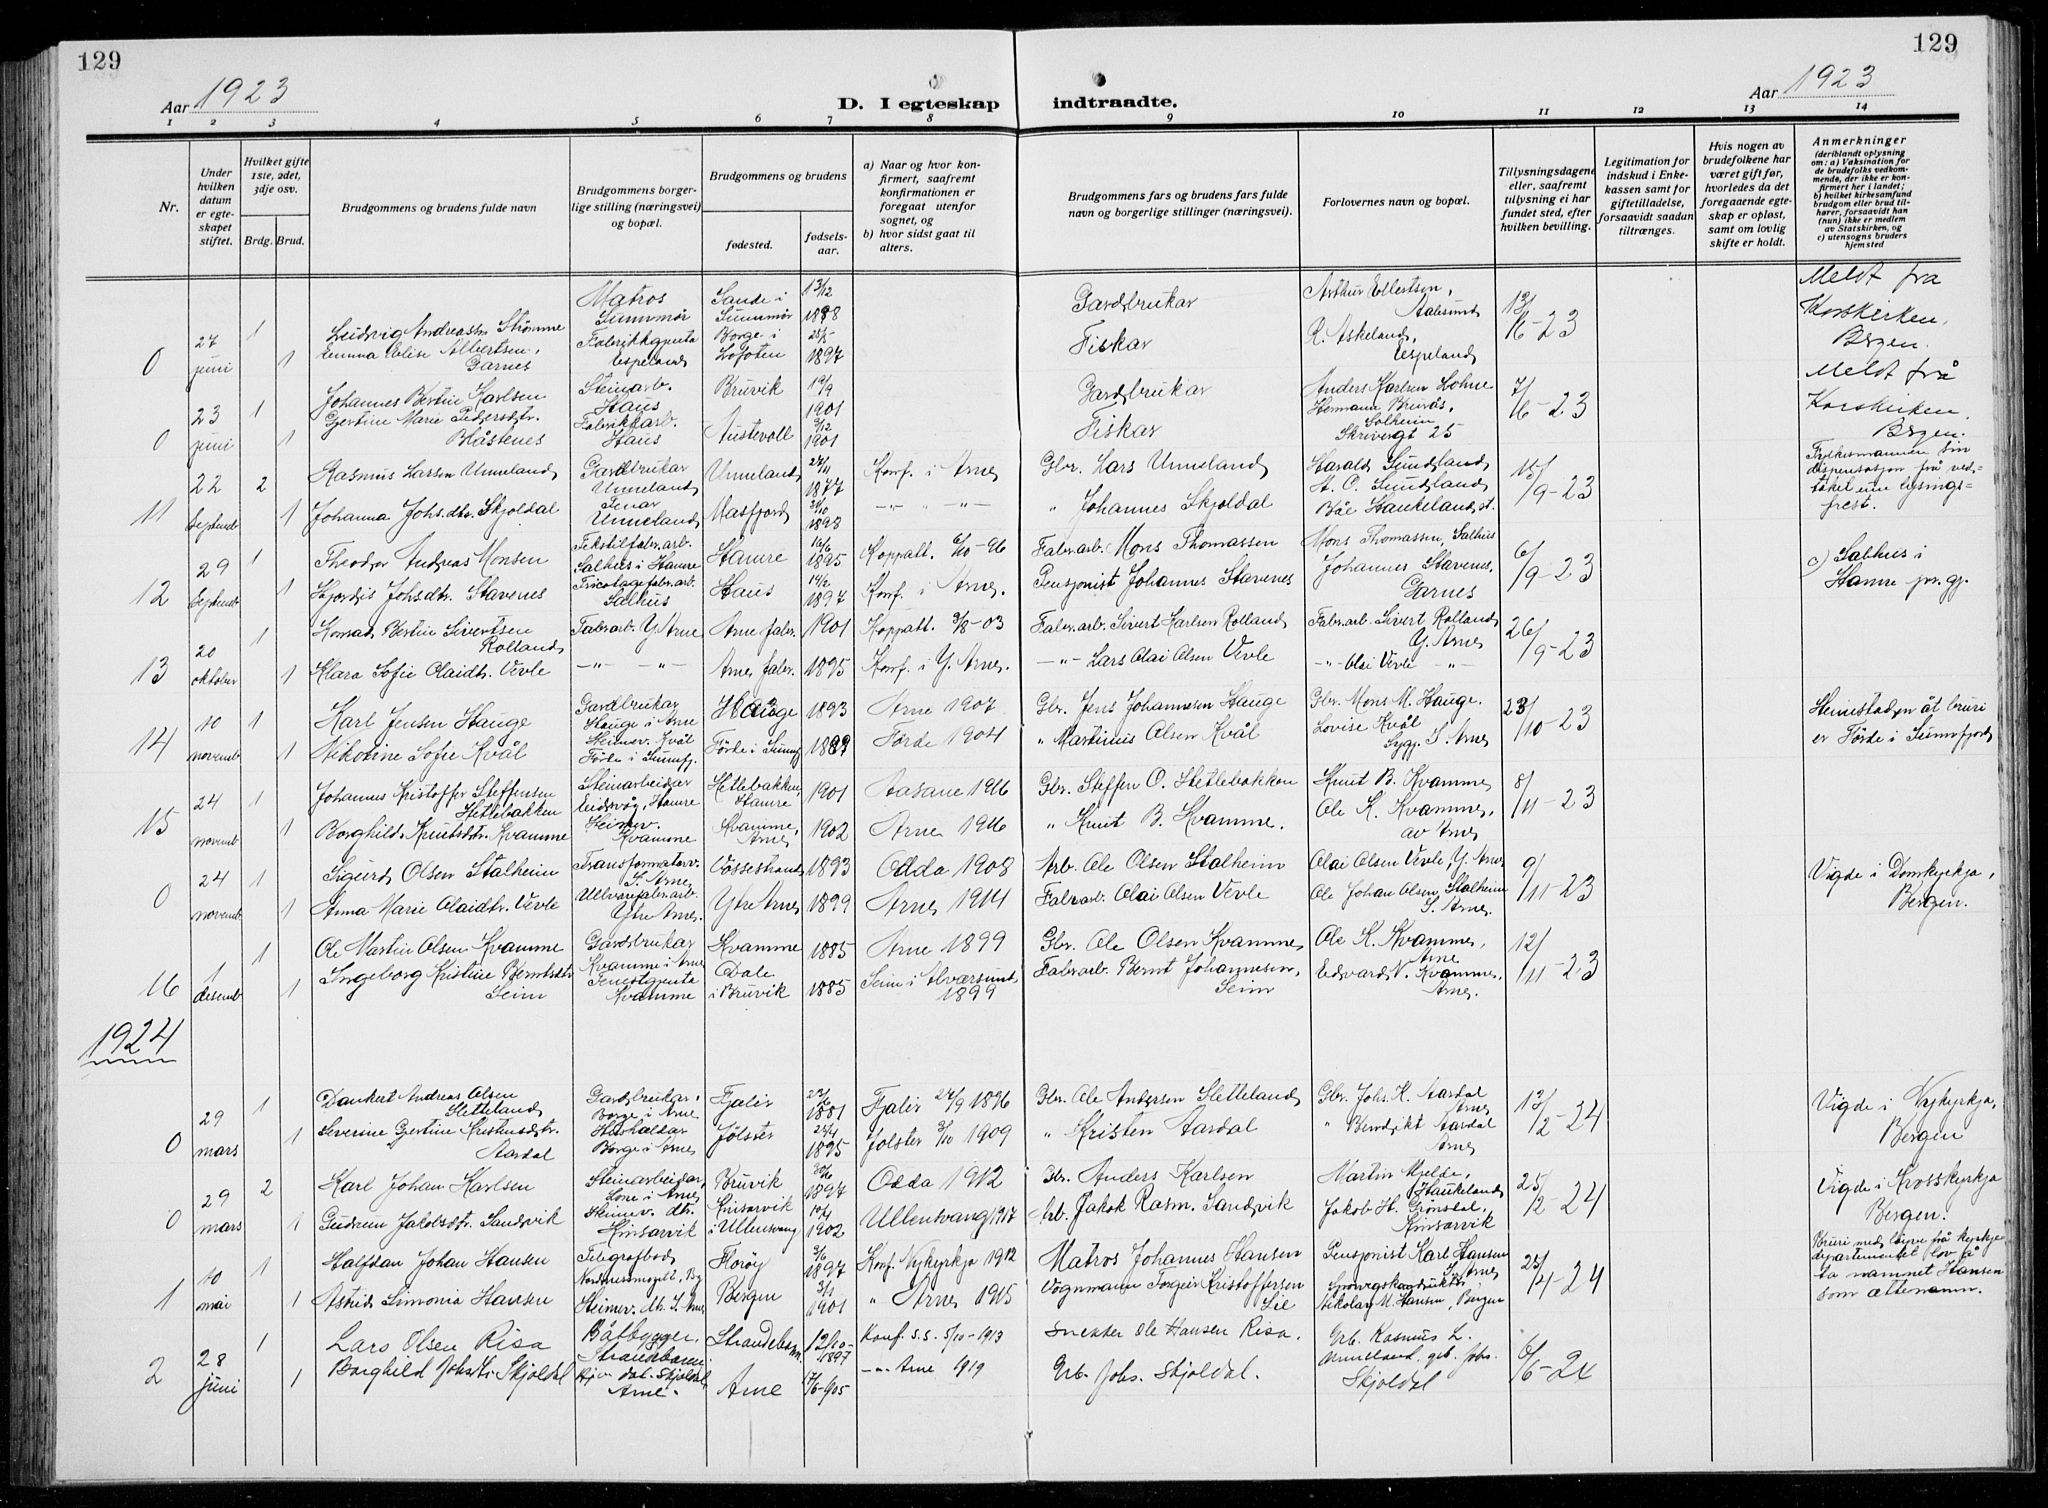 129
129
Aar 1923
D. I egteskap indtraadte.
Aar 1923
1 2 3 4 5 6 7 8 9 10 11 12 13 14
Nr.
Under hvilken datum er egteskapet stiftet.
Hvilket gifte 1ste, 2det, 3dje osv.
Brdg. Brud.
Brudgommens og brudens fulde navn
Brudgommens borgerlige stilling (næringsvei) og bopæl.
Brudgommens og brudens
fødested.
fødselsaar.
a) Naar og hvor konfirmert, saafremt konfirmationen er foregaat utenfor sognet, og
b) hvor sidst gaat til alters.
Brudgommens fars og brudens fars fulde navn og borgerlige stillinger (næringsvei).
Forlovernes navn og bopæl.
Tillysningsdagene eller, saafremt tillysning ei har fundet sted, efter hvilken bevilling.
Legitimation for indskud i Enkekassen samt for giftetilladelse, forsaavidt saadan tiltrænges.
Hvis nogen av brudefolkene har været gift før, hvorledes da det foregaaende egteskap er opløst, samt om lovlig skifte er holdt.
Anmerkninger
(deriblandt oplysning om: a) Vaksination for de brudefolks vedkommende, der ikke er konfirmert her i landet; b) hvilket kirkesamfund brudgom eller brud tilhører, forsaavidt han (hun) ikke er medlem av Statskirken, og c) utensogns bruders hjemsted
0 27 juni 1 Ludvig Andreassen Strømme Matros Sunnmør Sande i Sunnmør 13/12 1898 Gardbrukar Arthur Ellertsen, Aalesund 13/6-23 Meldt fra Korskirken, Bergen.
1 Emma Elise Albertsen, Garnes Fabrikkgjenta Espeland Borge i Lofoten 1897 Fiskar R. Askeland, Espeland
0 23 juni 1 Johannes Bertin Karlsen Steinarb. Haus Bruvik 19/9 1901 Gardbrukar Anders Karlsen Lohne 7/6-23 Meldt frå Korskirken, Bergen.
1 Gjertine Marie Pedersdtr. Blåstenes Fabrikkarb. Haus Austevoll 9/12 1901 Fiskar Hermann Brurås, Solheim Skrivergt 25
11 22 Septemb 2 Rasmus Larsen Unneland Gardbrukar Unneland Unneland 27/11 1877 Konf. i Arne Gbr. Lars Unneland Harald Sundland 15/9-23 Fylkesmannen sin dispensasjon frå vedtökel um lysingsfrest.
1 Johanna Johsdtr. Skjoldal Tenar Unneland Masfjord 30/10 1898 -"- -"- " Johannes Skjoldal A. O. Sundland Båe Haukeland st.
12 29 Septemb 1 Theodor Andreas Monsen Tekstilfabr.arb. Salhus i Hamre Hamre 16/6 1895 Koppatt. 6/10-96 Fabr.arb. Mons Thomassen Mons Thomassen, Salhus 6/9-23 c) Salhus i Hamre pr.gj.
1 Hjørdis Johsdtr. Stavenes Tricotagefabr.arb. Salhus Haus 14/2 1897 Konf. i Arne. Pensjonist Johannes Stavenes Johannes Stavenes, Garnes
13 20 oktober 1 Konrad Bertin Sivertsen Rolland Fabr.arb. Y. Arne Arne fabr. 1901 Koppatt. 3/8-03 Fabr.arb. Sivert Karlsen Rolland Fabr.arb. Sivert Rolland Y. Arne 26/9-23
1 Klara Sofie Olaidtr. Vevle -"- -"- Arne fabr. 1895 Konf. i Y. Arne. -"- Lars Olai Olsen Vevle -"- Olai Vevle -"-
14 10 novemb 1 Karl Jensen Hauge Gardbrukar Hauge i Arne Hauge 1893 Arne 1907 Gbr. Jens Johannesen Hauge Gbr. Mons M. Hauge. 23/10-23 Heimstaden åt bruri er Förde i Sunnfjord
1 Nikoline Sofie Kvål Heimev. Kvål Förde i Sunnfj. Förde i Sunnfj 1889 Förde 1904 " Martinus Olsen Kvål Lovise Kvål Sygp. I. Arne
15 24 novemb 1 Johannes Kristoffer Steffensen Hetlebakken Steinarbeidar Eidsvåg, Hamre Hetlebakken, Hamre 1901 Aasane 1916 Gbr. Steffen O. Hetlebakken Knut B. Kvamme 8/11-23
1 Borghild Knutsdtr. Kvamme Heimev. Kvamme Kvamme, Arne 1902 Arne 1916 " Knut B. Kvamme. Ole K. Kvamme, av Arne
0 24 novemb 1 Sigurd Olsen Stalheim Transformatorv. I. Arne Vossestrand 1893 Odda 1908 Arb. Ole Olsen Stalheim Olai Olsen Vevle, Y. Arne 9/11-23 Vigde i Domkyrkja, Bergen.
1 Anna Marie Olaidtr. Vevle Ullvarefabr.arb. Ytre Arne. Ytre Arne 1899 Arne 1914 Fabr.arb. Olai Olsen Vevle Ole Johan Olsen Stalheim I. Arne.
16 1 desemb 1 Ole Martin Olsen Kvamme Gardbrukar Kvamme i Arne Kvamme 1885 Arne 1899 Gbr. Ole Olsen Kvamme Ole K. Kvamme, Arne 12/11-23
1 Ingeborg Kristine Berntsdtr Seim Tenestgjenta Kvamme Dale i Bruvik 1885 Seim i Alversund 1899 Fabr.arb. Bernt Johannesen, Seim Edvard N. Kvamme, Arne.
1924
0 29 mars 1 Dankert Andreas Olsen Sletteland Gardbrukar, Borge i Arne Fjaler 22/6 1881 Fjaler 27/9 1896 Gbr. Ole Andersen Sletteland Gbr. Johs. K. Aardal Arne 13/2-24 Vigde i Nykyrkja, Bergen
1 Severine Gjertine Kristensdtr. Aardal Hushaldar Borge i Arne Jölster 25/4 1895 Jolster 3/10 1909 " Kristen Aardal " Bendikt Aardal Arne
0 29 mars 2 Karl Johan Karlsen Steinarbeidar, Lone i Arne Bruvik 30/6 1897 Odda 1912 Gbr. Anders Karlsen Martin Mjelde, Haukeland 25/2-24 Vigde i Krosskyrkja Bergen.
1 Gudrun Jakobsdtr. Sandvik Heimev. dtr. Kinsarvik Kinsarvik i Ullensvang 19/4 1902 Ullensvang 1917 Arb. Jakob Rasm. Sandvik Jakob H. Grönsdal, Kinsarvik
1 10 mai 1 Halfdan Johan Hansen Telegrafbod Florøy 3/6 1897 Konf. Nykyrkja 1912 Matros Johannes Hansen Pensjonist Karl Hansen I. Arne 25/4-24 Bruri med löyve frå kyrkjedepartementet lov få ta nammet Hansen som ættenamn.
1 Astrid Simonia Hansen Heimev. dtr. I. Arne Bergen 3/1 1901 " Arne 1915 Vognmann Torgeir Kristoffersen Lie Nikolay M. Hansen, Bergen
2 28 juni 1 Lars Olsen Risa Båtbygger, Strandebarm Strandebarm 12/10-1897 Konf. s.s. 5/10-1913 Snekker Ole Hansen Risa. Grb. Rasmus L. Unneland, grb. Johs. Skjoldal 6/6-24
1 Borghild Johsdtr. Skjoldal Hjv. dat. Skjoldal, Arne. Arne 17/6-1905 -"- Arne 1919 Grb. Johs. Skjoldal.